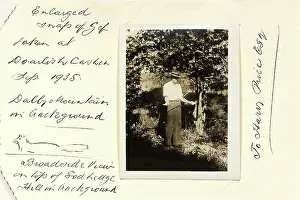 Enlarged
snap of Gef
taken at
Doarlish Cashen
Sep 1935.
Dalby Mountain
in background
Broadside View
on top of Sod hedge
Hill in background
To Harry Price Esq